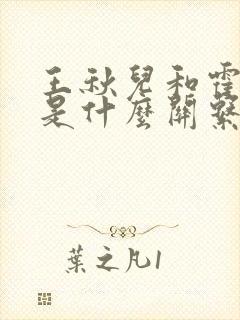 王秋兒和霍
是什麼關繫
葉之凡1